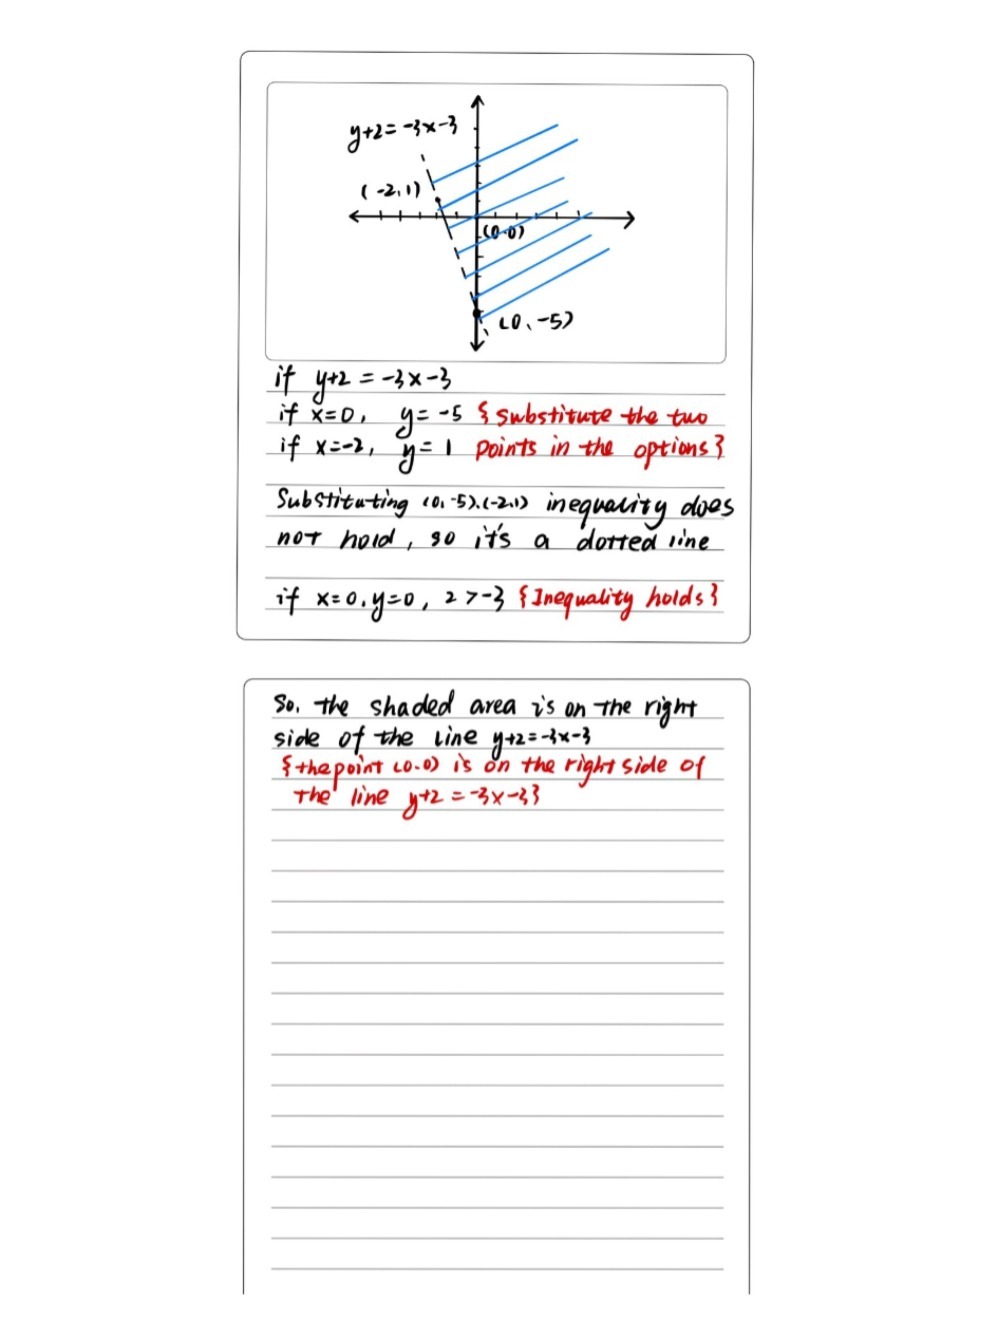 y+2=-3x-3
(-2,1)
(0.0)
(0、-5)
if y+2 = -3x-3
if x=0, y= -5 {substitute the two
if x=-2, y= 1 points in the options}
Substituting (0,-5).(-2.1) inequality does
not hold, so it's a dotted line
if x=0.y=0, 2>-3 {Inequality holds}
So. the shaded area is on the right
side of the line y+2=-3x-3
{the point (0.0) is on the right side of
the line y+2 =-3x-3}